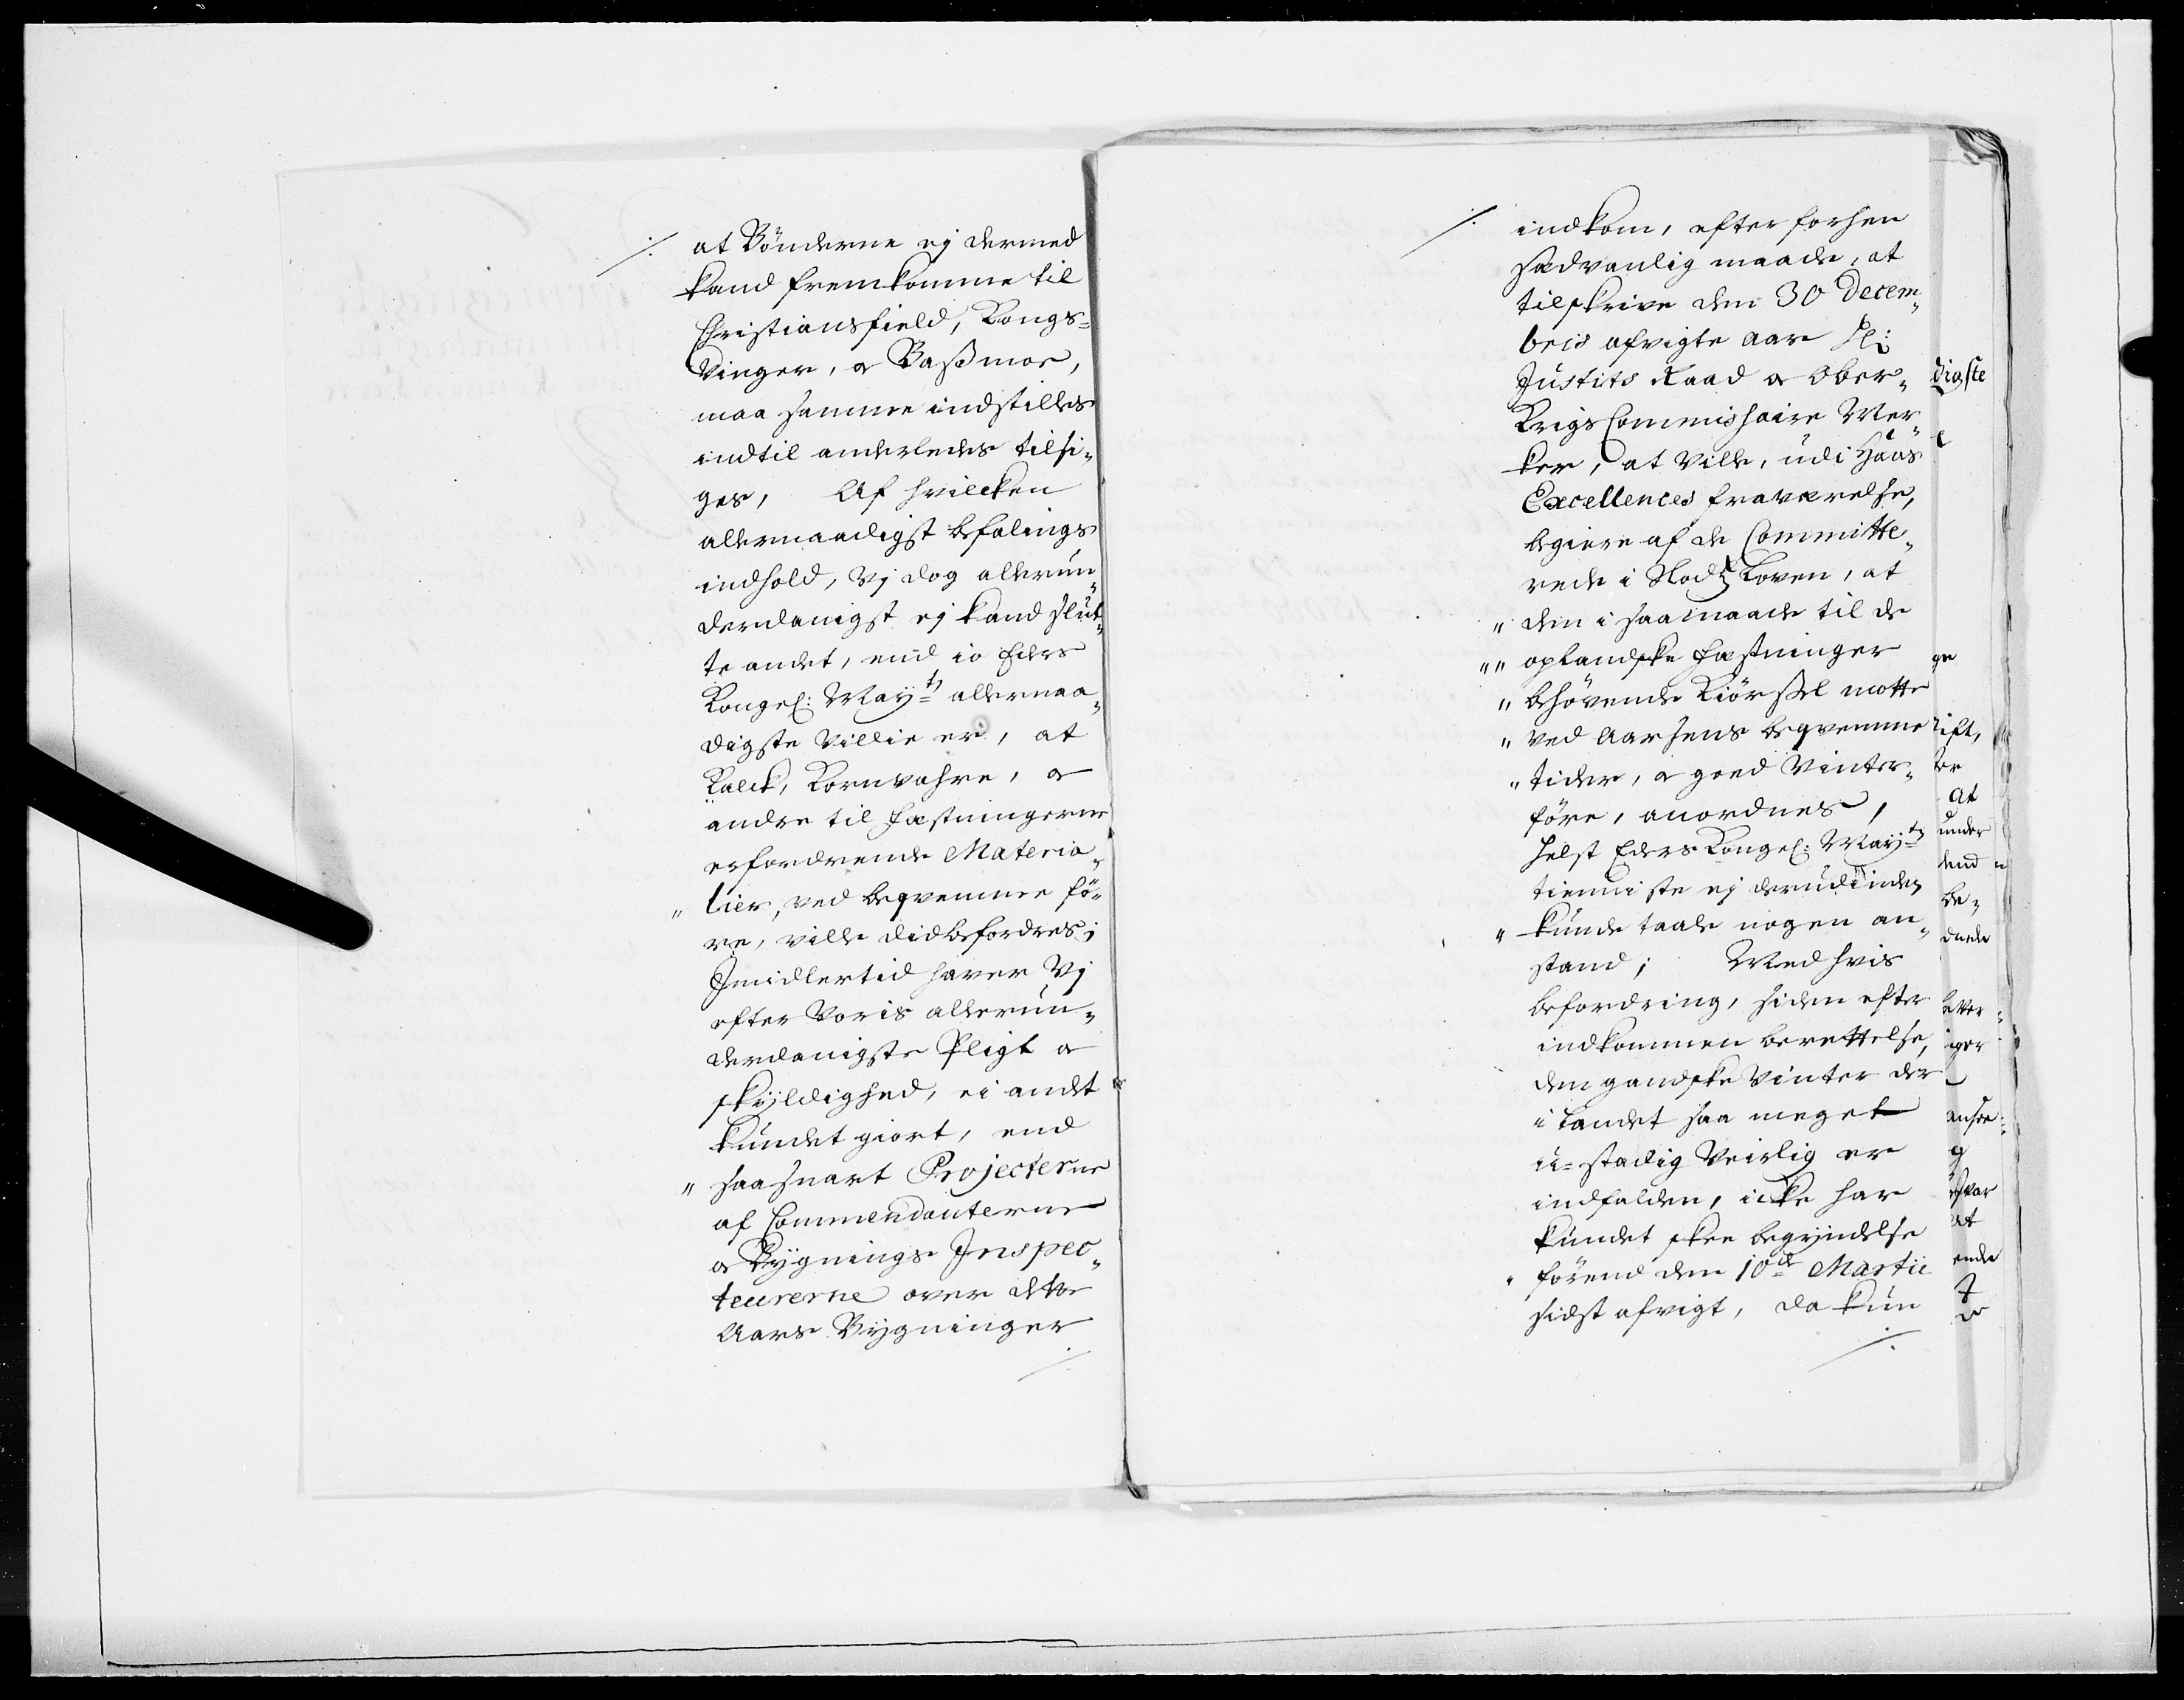 at Bønderne ej dermed
kand fremkomme til
Christiansfield, Kongs-
Vinger, & Basmoe,
maa samme indstilles
indtil anderledes tilsi-
ges, Af hvilcken
allernaadigst befalings
indhold, Vj dog allerun-
derdanigst ej kand slut-
te andet, end io Eders
Kongel: Mayts allernaa-
digste Villie er, at
Kalck, Kornvahre, &
andre til Fæstningerne
erfordrende Materia-
" lier, ved beqvemme fø-
re, ville didbefordres;
Imidlertid haver Vj
efter Voris allerun-
derdanigste Pligt &
skyldighed, ei andet
kundet giort, end
" saasnart Projecterne
af Commendanterne
& Bygnings Inspec-
teurerne over dette
Aars Bygninger
indkom, efter forhen
sædvanlig maade, at
tilskrive den 30 Decem-
bris afvigte aar Hr:
Justits Raad & Ober-
Krigs Commissaire Wer-
ker, at Ville, udi Hans
Excellences fraværelse,
begiere af de Committe-
rede i Slods Loven, at
" den i saa maade til de
"" oplandske Fæstninger
" behøvende Kiørsel motte
" ved Aarsens beqvemme
" tider, & goed Vinter-
føre, anordnes,
helst Eders Kongel: Mayts
tienniste ej derudinden
" kunde taale nogen an-
stand; Med hvis
befordring, siden efter
indkommen berettelse,
den gandske Vinter der
i Landet saa meget
u-stadig Veirlig er
indfalden, icke har
kundet skee begyndelse
" førend den 10de Martii
sidst afvigt, da kun